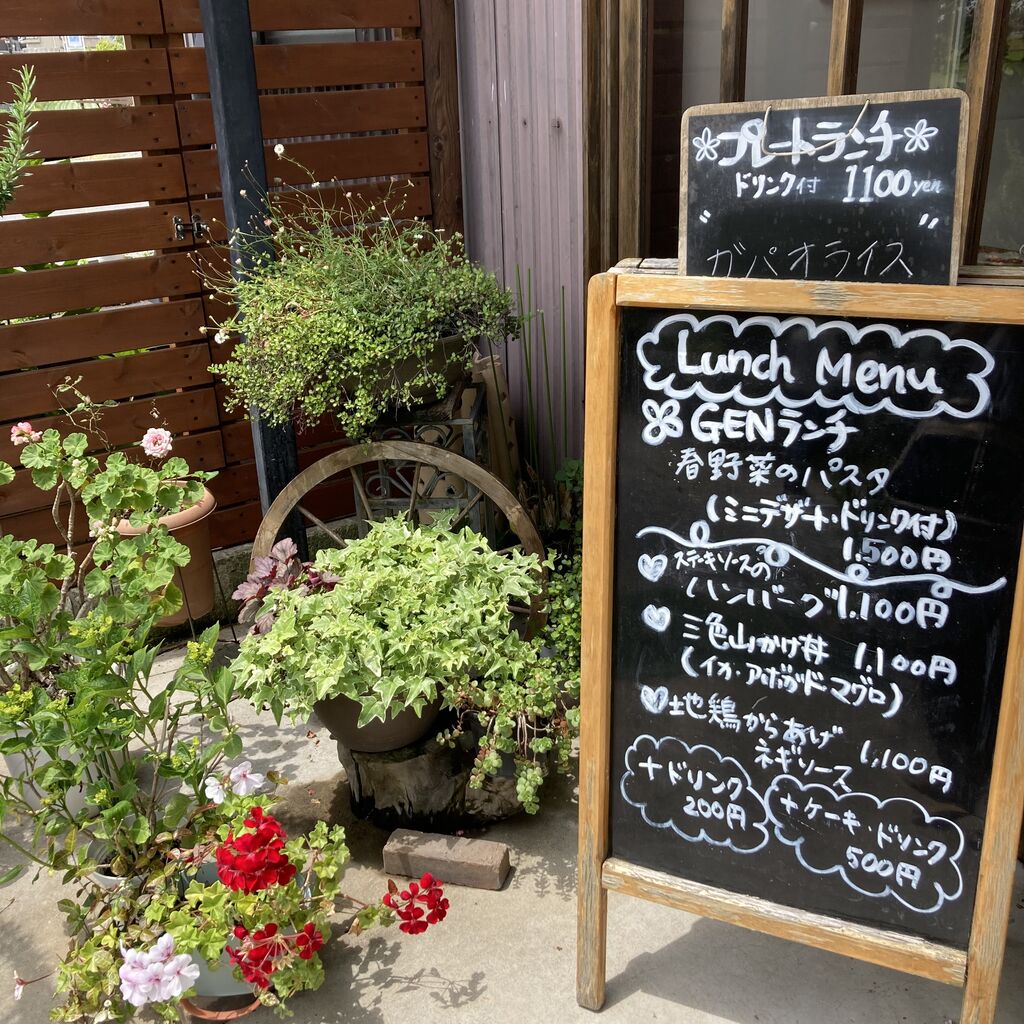 プレートランチ
ドリンク付 1100yen
" "
ガパオライス
Lunch Menu
GENランチ
春野菜のパスタ
(ミニデザート・ドリンク付)
1,500円
ステーキソースの
ハンバーグ 1,100円
三色山かけ丼 1,100円
(イカ・アボガド・マグロ)
地鶏からあげ
ネギソース 1,100円
+ドリンク
200円
+ケーキ・ドリンク
500円